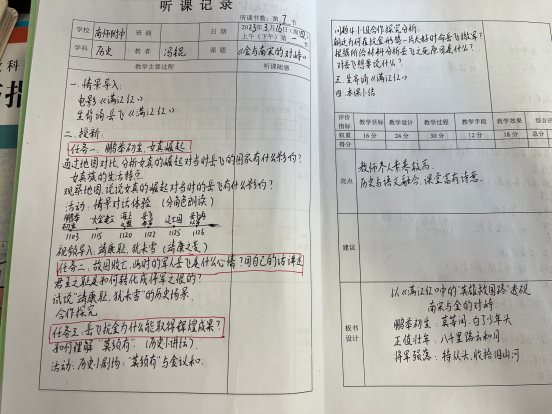 听课记录
听课节数：第 7 节
学校 南师附中 班级 日期 2023年3月15日(周三)
上午(下午) 第 节
学科 历史 教者 冯锟 课题 《金与南宋的对峙》
教学主要过程 听课随感
一. 情景导入:
电影《满江红》
生背诵岳飞《满江红》
二. 授新.
任务一. 鹏举初生. 女真崛起
通过地图对比, 分析女真的崛起对当时岳飞的国家有什么影响?
女真族的生活特点.
观察地图. 说说女真的崛起对当时岳飞有什么影响?
活动: 情景对话体验 (分角色朗读)
1103 1115 1120 1122 1125 1126
视频导入: 靖康耻. 犹未雪 (靖康之变)
任务二: 故国败亡. 此时的军人岳飞是什么心情? 用自己的话讲述
君主之耻是如何转化成将军之恨的?
试说"靖康耻. 犹未雪"的历史场景.
合作探究
任务三. 岳飞抗金为什么能取得辉煌成果?
如何理解"莫须有" (历史小讲坛)
活动: 历史小剧场: "莫须有"与会议和.
问题4. 小组合作探究分析.
对岳飞想要说什么?
三. 生齐诵《满江红》
四. 本课小结
评价指标 教学目标 教学设计 教学过程 教学手段 教学效果 综合评
权重 16分 24分 30分 12分 18分 总分
得分
亮点
教师个人素养较高.
历史与语文融合. 课堂富有诗意.
建议
板书设计
以《满江红》中的"英雄救国路"透视
南宋与金的对峙
鹏举初生: 莫等闲. 白了少年头
正值壮年: 八千里路云和月
将军殒落: 待从头. 收拾旧山河